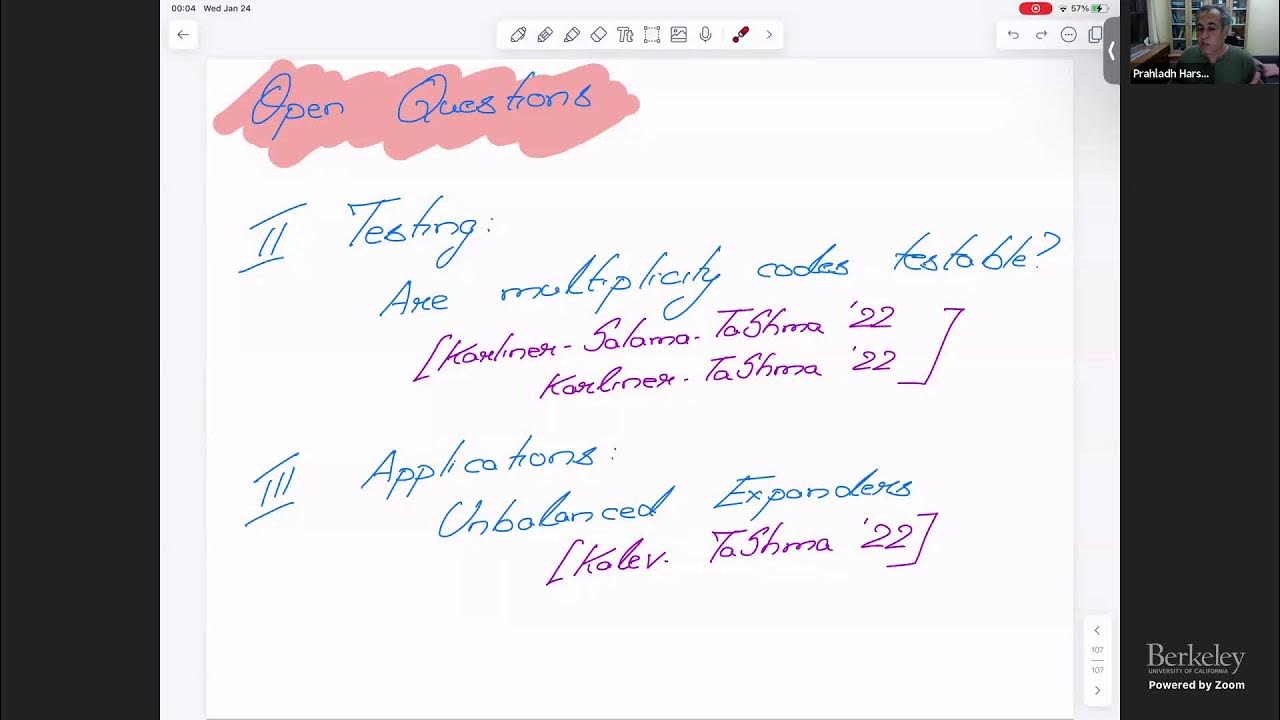 00:04 Wed Jan 24
57%
Prahladh Hars...
Open Questions
II Testing:
Are multiplicity codes testable?
[Karliner-Salama-TaShma '22
Karliner-TaShma '22]
III Applications:
Unbalanced Expanders
[Kalev-TaShma '22]
107
107
Berkeley
UNIVERSITY OF CALIFORNIA
Powered by Zoom